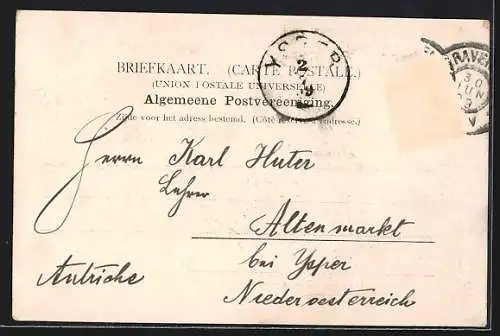 BRIEFKAART. (CARTE POSTALE.)
(UNION POSTALE UNIVERSELLE)
Algemeene Postvereeniging.
Zijde voor het adres bestemd. (Côté réservé à l'adresse.)
Herrn Karl Huter
Lehrer
Altenmarkt
bei Ysper
Autriche
Niederoesterreich
YSPER
2
30
JUN
V